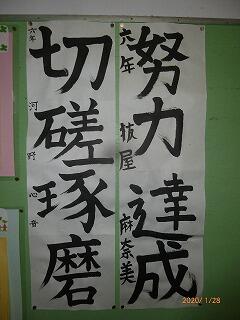 努力達成
六年 板屋 麻奈美
切磋琢磨
六年 河野 心音
2020/1/28